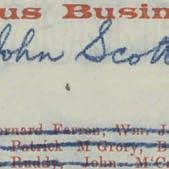 us Busin
John Scott
ernard Farren, Wm. J
Patrick M'Grory, B
Ruddy, John M'C